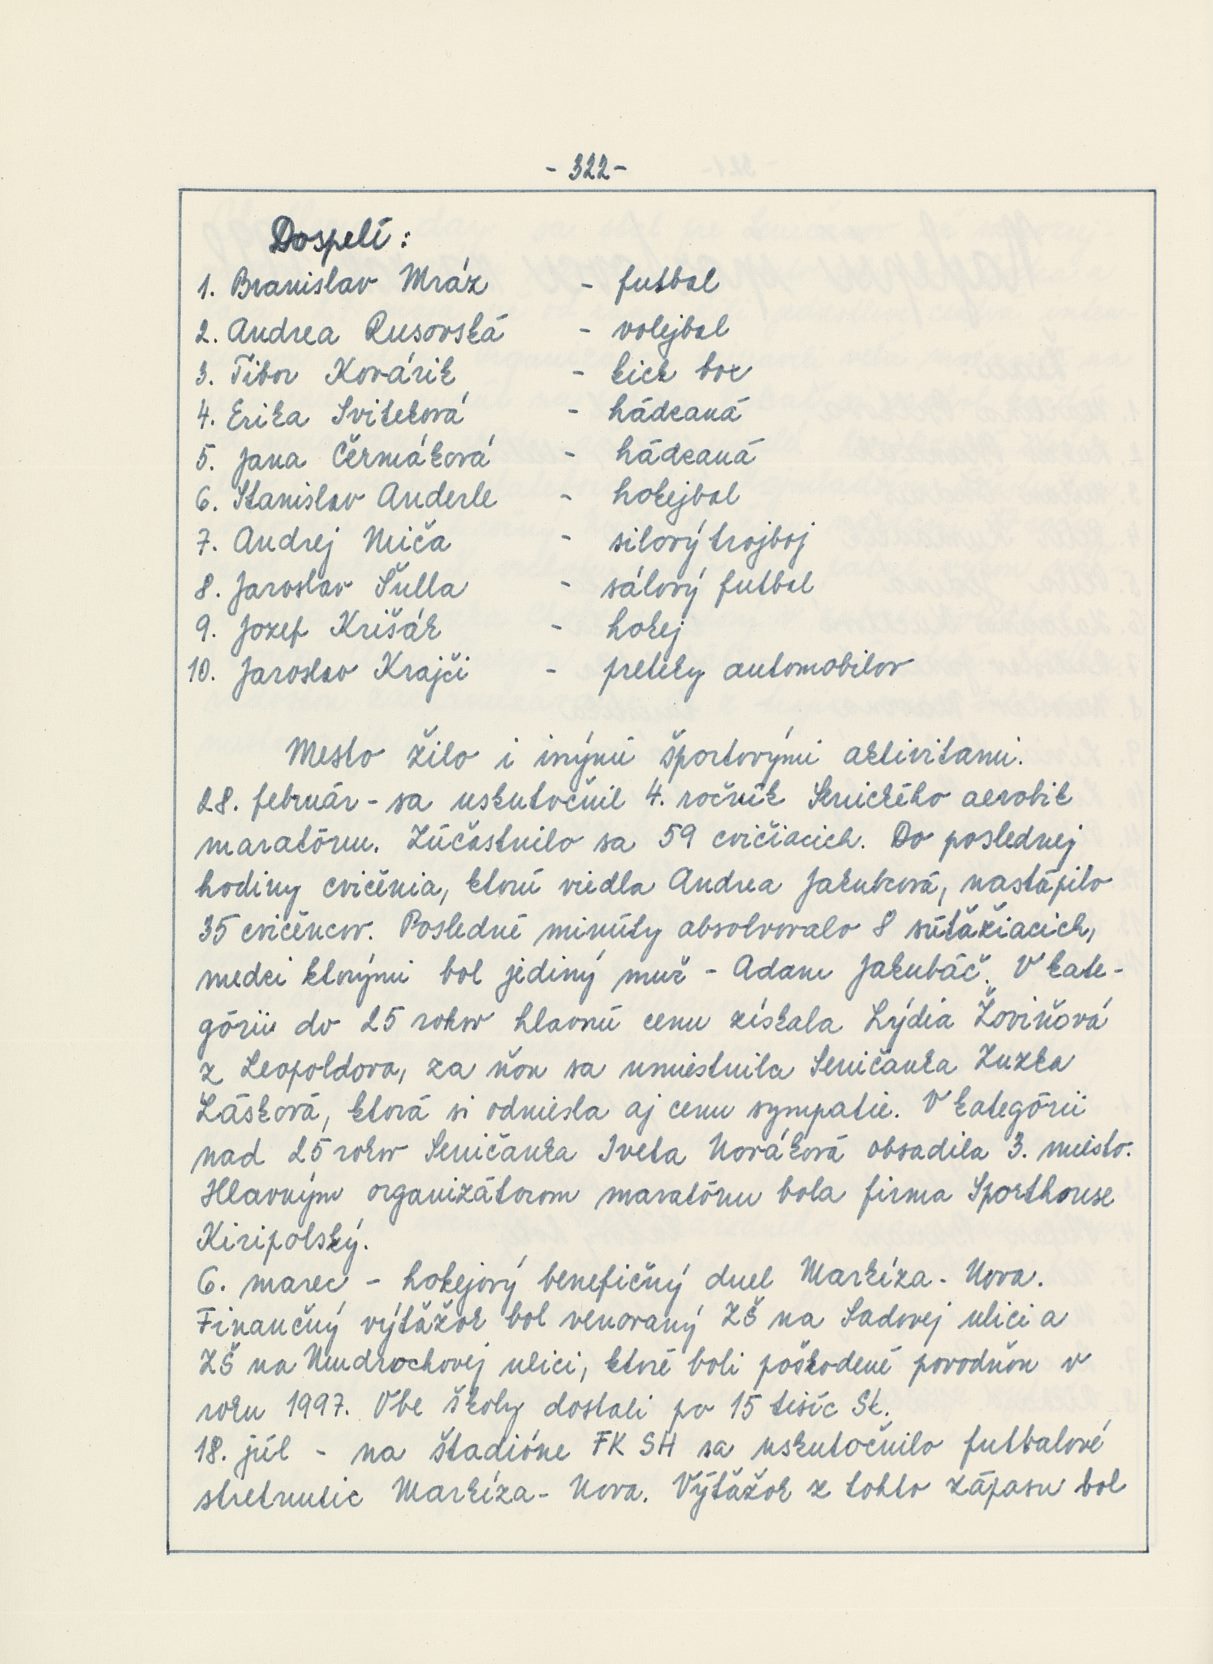 - 322 -
Dospelí :
1. Branislav Mráz - futbal
2. Andrea Rusovská - volejbal
3. Tibor Kovárik - kick box
4. Erika Sviteková - hádzaná
5. Jana Čermáková - hádzaná
6. Stanislav Anderle - hokejbal
7. Andrej Miča - silový trojboj
8. Jaroslav Šulla - sálový futbal
9. Jozef Krišák - hokej
10. Jaroslav Krajči - preteky automobilov
Mesto žilo i inými športovými aktivitami.
28. február - sa uskutočnil 4. ročník Senického aerobik
maratónu. Zúčastnilo sa 59 cvičiacich. Do poslednej
hodiny cvičenia, ktorú viedla Andrea Jakubcová, nastúpilo
35 cvičencov. Posledné minúty absolvovalo 8 súťažiacich,
medzi ktorými bol jediný muž - Adam Jakubáč. V kate-
górii do 25 rokov hlavnú cenu získala Lýdia Žovinčová
z Leopoldova, za ňou sa umiestnila Seničanka Zuzka
Lásková, ktorá si odniesla aj cenu sympatie. V kategórii
nad 25 rokov Seničanka Iveta Nováková obsadila 3. miesto.
Hlavným organizátorom maratónu bola firma Sporthouse
Kiripolský.
6. marec - hokejový benefičný duel Markíza - Nova.
Finančný výťažok bol venovaný ZŠ na Sadovej ulici a
ZŠ na Mudrochovej ulici, ktoré boli poškodené povodňou v
roku 1997. Obe školy dostali po 15 tisíc Sk.
18. júl - na štadióne FK SH sa uskutočnilo futbalové
stretnutie Markíza - Nova. Výťažok z tohto zápasu bol